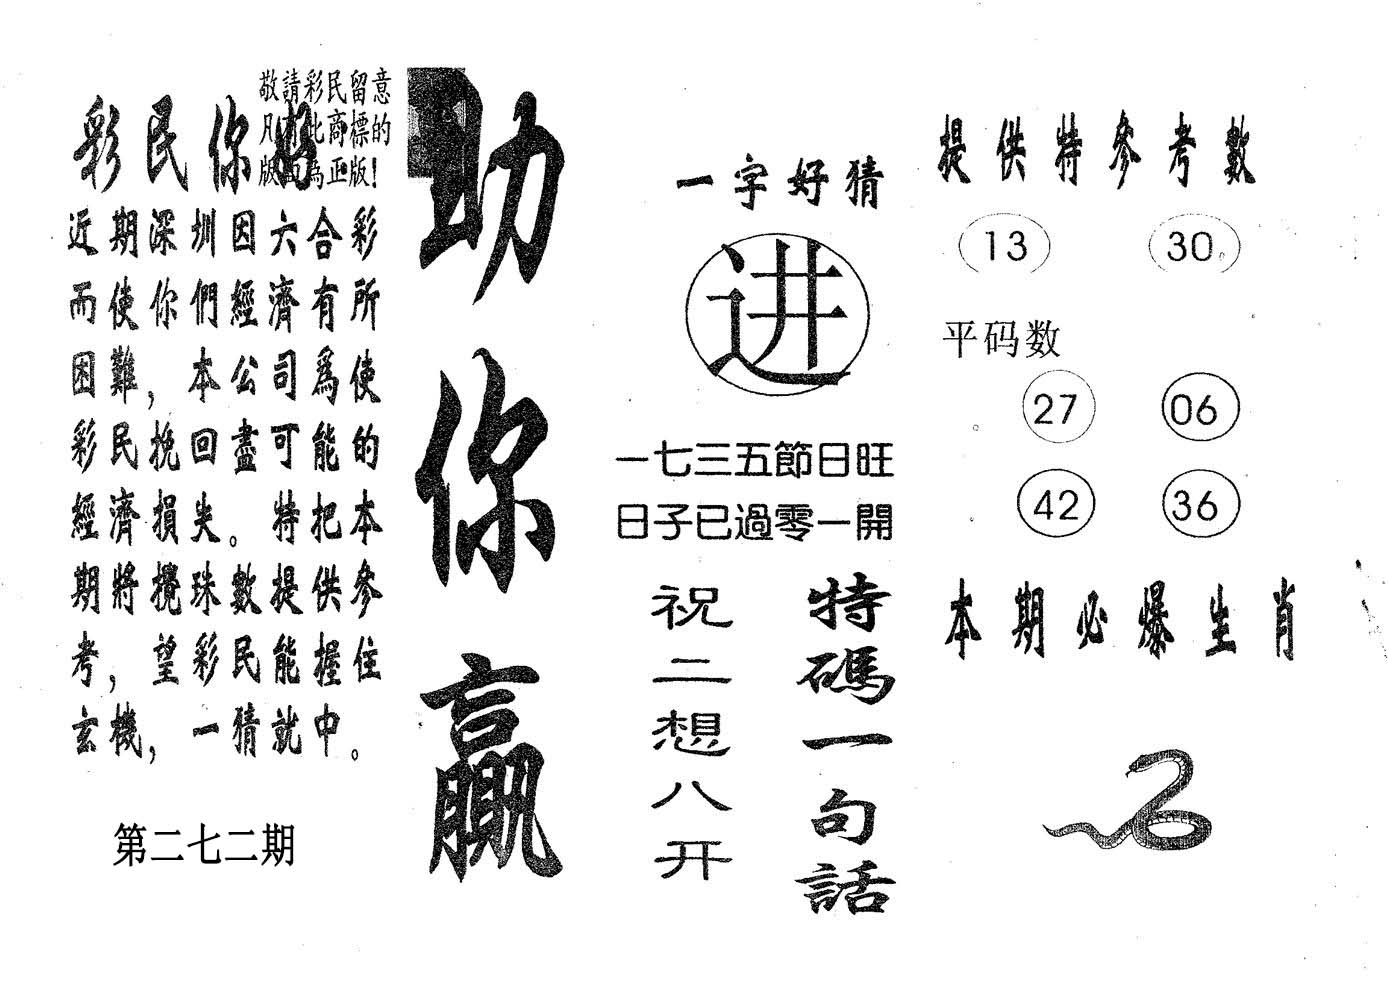 敬請彩民留意
凡有此商標的
版面為正版！
彩民你好
近期深圳因六合彩
而使你們經濟有所
困難，本公司爲使
彩民挽回盡可能的
經濟損失。特把本
期將攪珠數提供參
考，望彩民能握住
玄機，一猜就中。
第二七二期
助你贏
一字好猜
进
一七三五節日旺
日子已過零一開
特碼一句話
祝二想八开
提供特參考數
13 30
平码数
27 06
42 36
本期必爆生肖